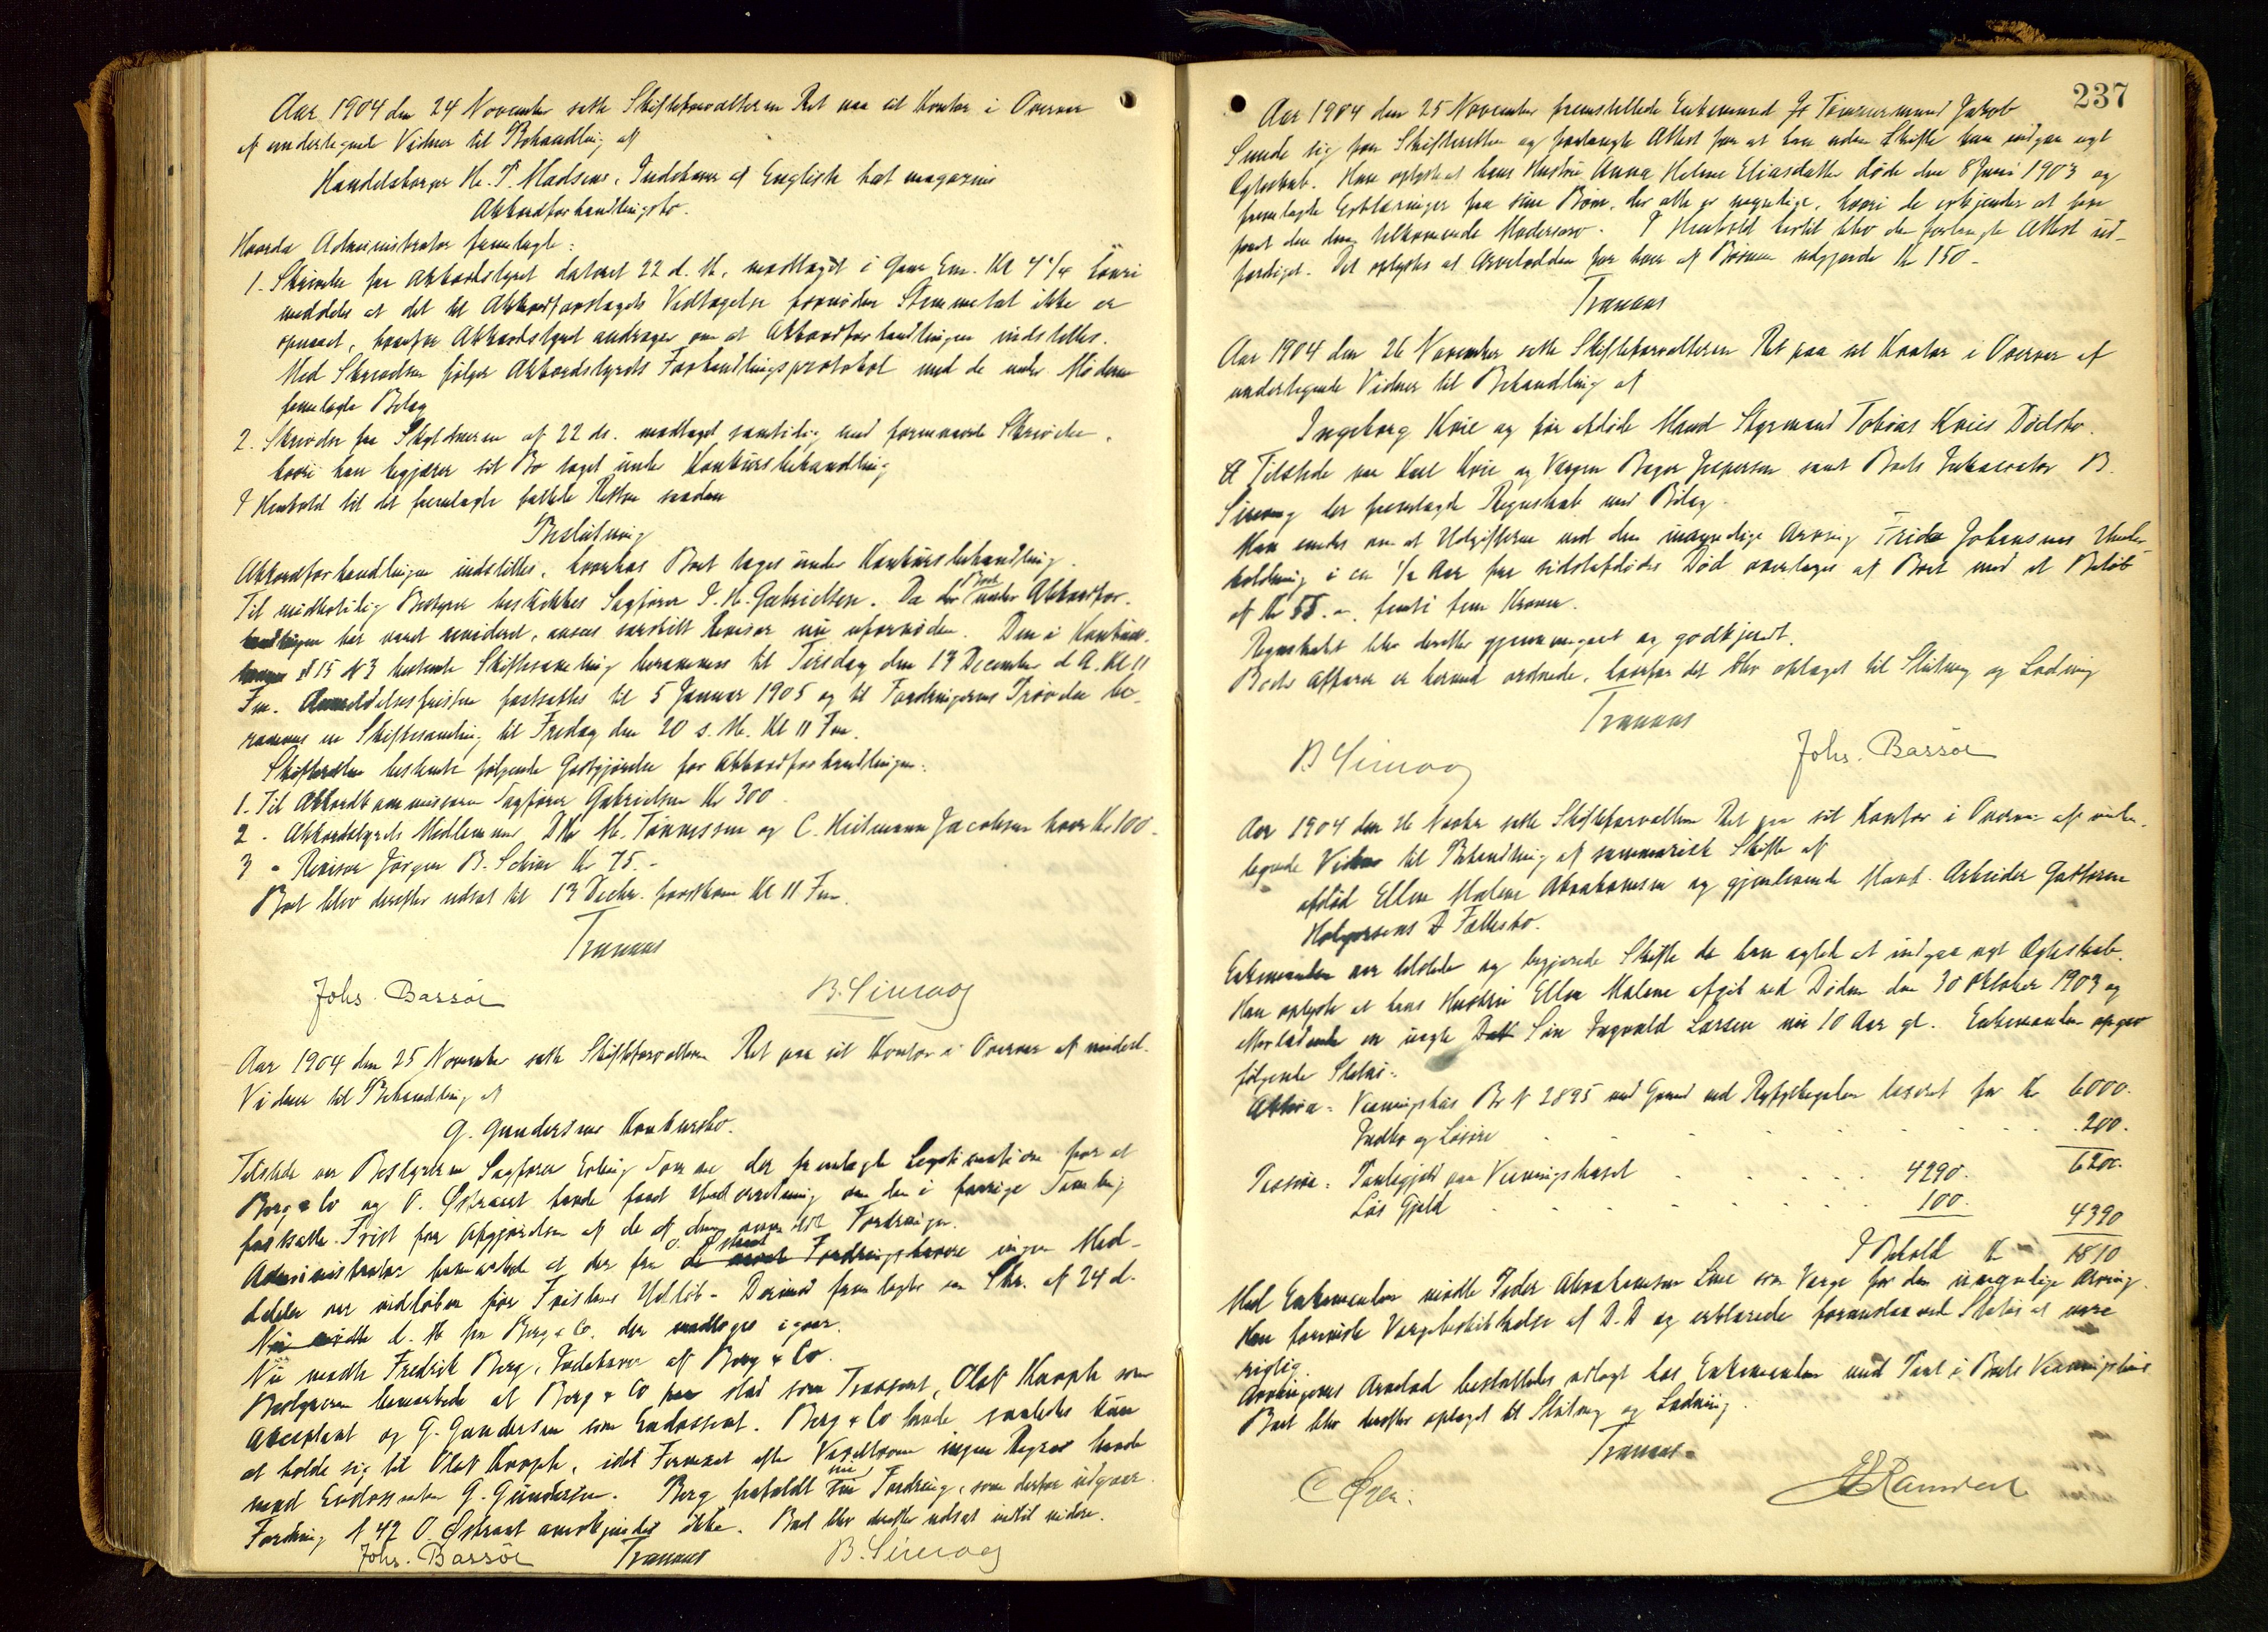 Aar 1904 den 24 November satte Skifteforvalteren Ret paa sit Kontor i Overvær
af undertegnede Vidner til Behandling af
Handelsborger M. T. Madsens, Indehaver af Englisk hat magazins
Akkordforhandlingsbo.
Hvorda Administrator fremlagde:
1. Skrivelse fra Akkordstyret dateret 22 d. M. modtaget i Gaar Em. Kl 4 1/4 hvori
meddeles at det til Akkordforslagets Vedtagelse fornødne Stemmetal ikke er
opnaaet, hvorfor Akkordstyret andrager om at Akkordforhandlingen indstilles.
Med Skrivelsen følger Akkordstyrets Forhandlingsprotokol med de under Møderne
fremlagte Bilag
2. Skrivelse fra Skyldneren af 22 ds. modtaget samtidig med fornævnte Skrivelse,
hvori han begjærer sit Bo taget under Konkursbehandling
I Henhold til det fremlagte fattede Retten saadan
Beslutning
Akkordforhandlingen indstilles, hvorhos Boet tages under Konkursbehandling.
Til midlertidig Bestyrer beskikkes Sagfører P. M. Gabrielsen. Da Boet under Akkordfor-
handlingen har været revideret, ansees særskilt Revisor nu ufornøden. Den i Konkurs-
loven § 15 N 3 bestemte Skiftesamling berammes til Tirsdag den 13 December d. A. Kl 11
Fm. Anmeldelsesfristen fastsættes til 5 Januar 1905 og til Fordringernes Prøvelse be-
rammes en Skiftesamling til Fredag den 20 s. M. Kl 11 Fm.
Skifteretten bestemte følgende Godtgjørelse for Akkordforhandlingen:
1. Til Akkordkommissæren Sagfører Gabrielsen Kr 300
2 - Akkordstyrets Medlemmer, DHr M. Tønnessen og C. Heitmann Jacobsen hver Kr. 100.-
3 - Revisor Jørgen B. Schive Kr 75.-
Boet blev derefter udsat til 13 Decbr. førstkom Kl 11 Fm.
Tranaas
Johs. Barsøe B. Sirevaag
Aar 1904 den 25 November satte Skifteforvalteren Ret paa sit Kontor i Overvær af undert.
Vidner til Behandling af
G. Gundersens Konkursbo.
Tilstede var Bestyreren Sagfører Erling der fremlagte Legitimation for at
Berg & Co og O. Østraat havde faaet Underretning om den i forrige Samling
fastsatte Frist for Afgjørelsen af de af dem anmeldte Fordringer.
Administrator bemærkede at der fra O. Østraat de Fordringshavere ingen Med-
delelse var indløben før Fristens Udløb - Derimod fremlagdes en Skr. af 24 d.
Nu mødte d. M fra Berg & Co. der modtoges igaar.
Nu mødte Fredrik Berg, Indehaver af Berg & Co.
Bestyreren bemærkede at Berg & Co stod som Trassent, Olaf Knoph som
Akceptant og G. Gundersen som Endossent. Berg & Co havde saaledes kun
at holde sig til Olaf Knoph, idet Firmaet efter Vexelloven ingen Regres havde
mod Endossenten G. Gundersen. Berg frafaldt sin Fordring, som derfor udgaar.
Fordring N 42 O. Østraat anerkjendes ikke. Boet blev derefter udsat indtil videre.
Johs. Barsøe Tranaas B. Sirevaag
237
Aar 1904 den 25 November fremstillede Enkemand Tømmermand Jakob
Sunde sig for Skifteretten og forlangte Attest for at han uden Skifte kan indgaa nyt
Egteskab. Han oplyste at hans Hustru Anna Helene Eliasdatter døde den 8 Juni 1903 og
fremlagte Erklæringer fra sine Børn, der alle er myndige, hvori de erkjender at have
faaet den dem tilkommende Mødrenearv. I Henhold hertil blev den forlangte Attest ud-
færdiget. Det oplystes at Arvelodden for hver af Børnene udgjorde Kr 150.-
Tranaas
Aar 1904 den 26 November satte Skifteforvalteren Ret paa sit Kontor i Overvær af
undertegnede Vidner til Behandling af
Ingeborg Kvie og før afdøde Mand Styrmand Tobias Kvies Dødsbo.
Tilstede var Karl Kvie og Værgen Bager Jespersen samt Boets Inkassator B.
Sirevaag der fremlagde Regnskab med Bilag.
Man enedes om at Udgifterne ved den umyndige Arving Frida Johansens Under-
holdning i ca 1/2 Aar fra sidstafdødes Død overtages af Boet med et Beløb
af Kr 55. -, femti fem Kroner.
Regnskabet blev derefter gjennemgaaet og godkjendt.
Boets Affærer er hermed ordnede, hvorfor det blev optaget til Slutning og Lodning
Tranaas
B Sirevaag Johs. Barsøe
Aar 1904 den 26 Novbr satte Skifteforvalteren Ret paa sit Kontor i Overvær af under-
tegnede Vidner til Behandling af summarisk Skifte af
afdød Ellen Malene Abrahamsen og gjenlevende Mand Arbeider Guttorm
Holgersens Fællesbo.
Enkemanden var tilstede og begjærede Skifte da han agted at indgaa nyt Egteskab.
Han oplyste at hans Hustru Ellen Malene afgik ved Døden den 30 Oktober 1903 og
efterladende en uægte Datt Søn Ingvald Larsen nu 10 Aar gl. Enkemanden opgav
følgende Status:
Aktiva: Vaaningshus Br N 2895 med Grund ved Ryfylkegaden taxeret for Kr 6000.
Indbo og Løsøre 200.
6200.
Passiva: Pantegjæld paa Vaaningshuset 4290.
Løs Gjæld 100.
4390
I Behold Kr 1810
Med Enkemanden mødte Peder Abrahamsen som Værge for den umyndige Arving.
Han foreviste Værgebeskikkelse af D. D og erklærede foranstaaende Status at være
rigtig.
Arvingernes Arvelod besluttedes udlagt hos Enkemanden mod Pant i Boets Vaaningshus
Boet blev derefter optaget til Slutning og Lodning.
Tranaas